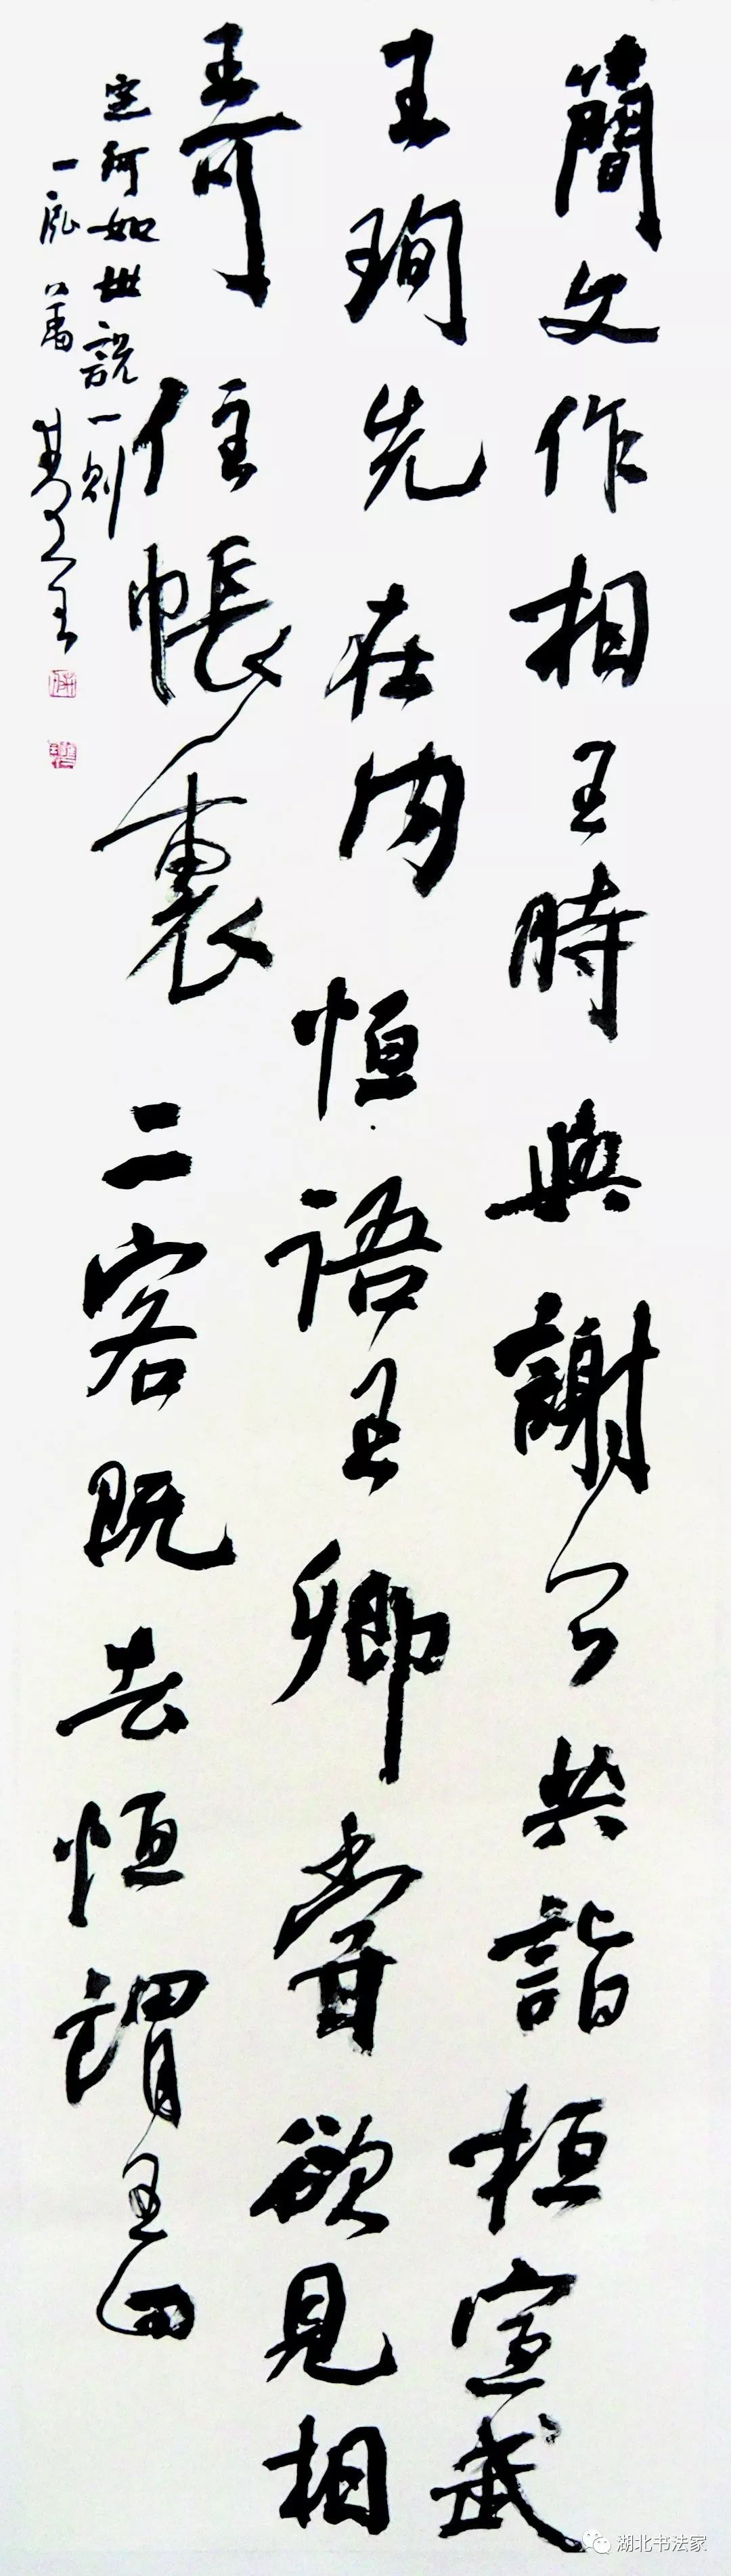 簡文作相王時與謝公共詣桓宣武
王珣先在內恒語王卿嘗欲見相
王可住帳裏二客既去恒謂王曰
定何如世說一則
湖北书法家